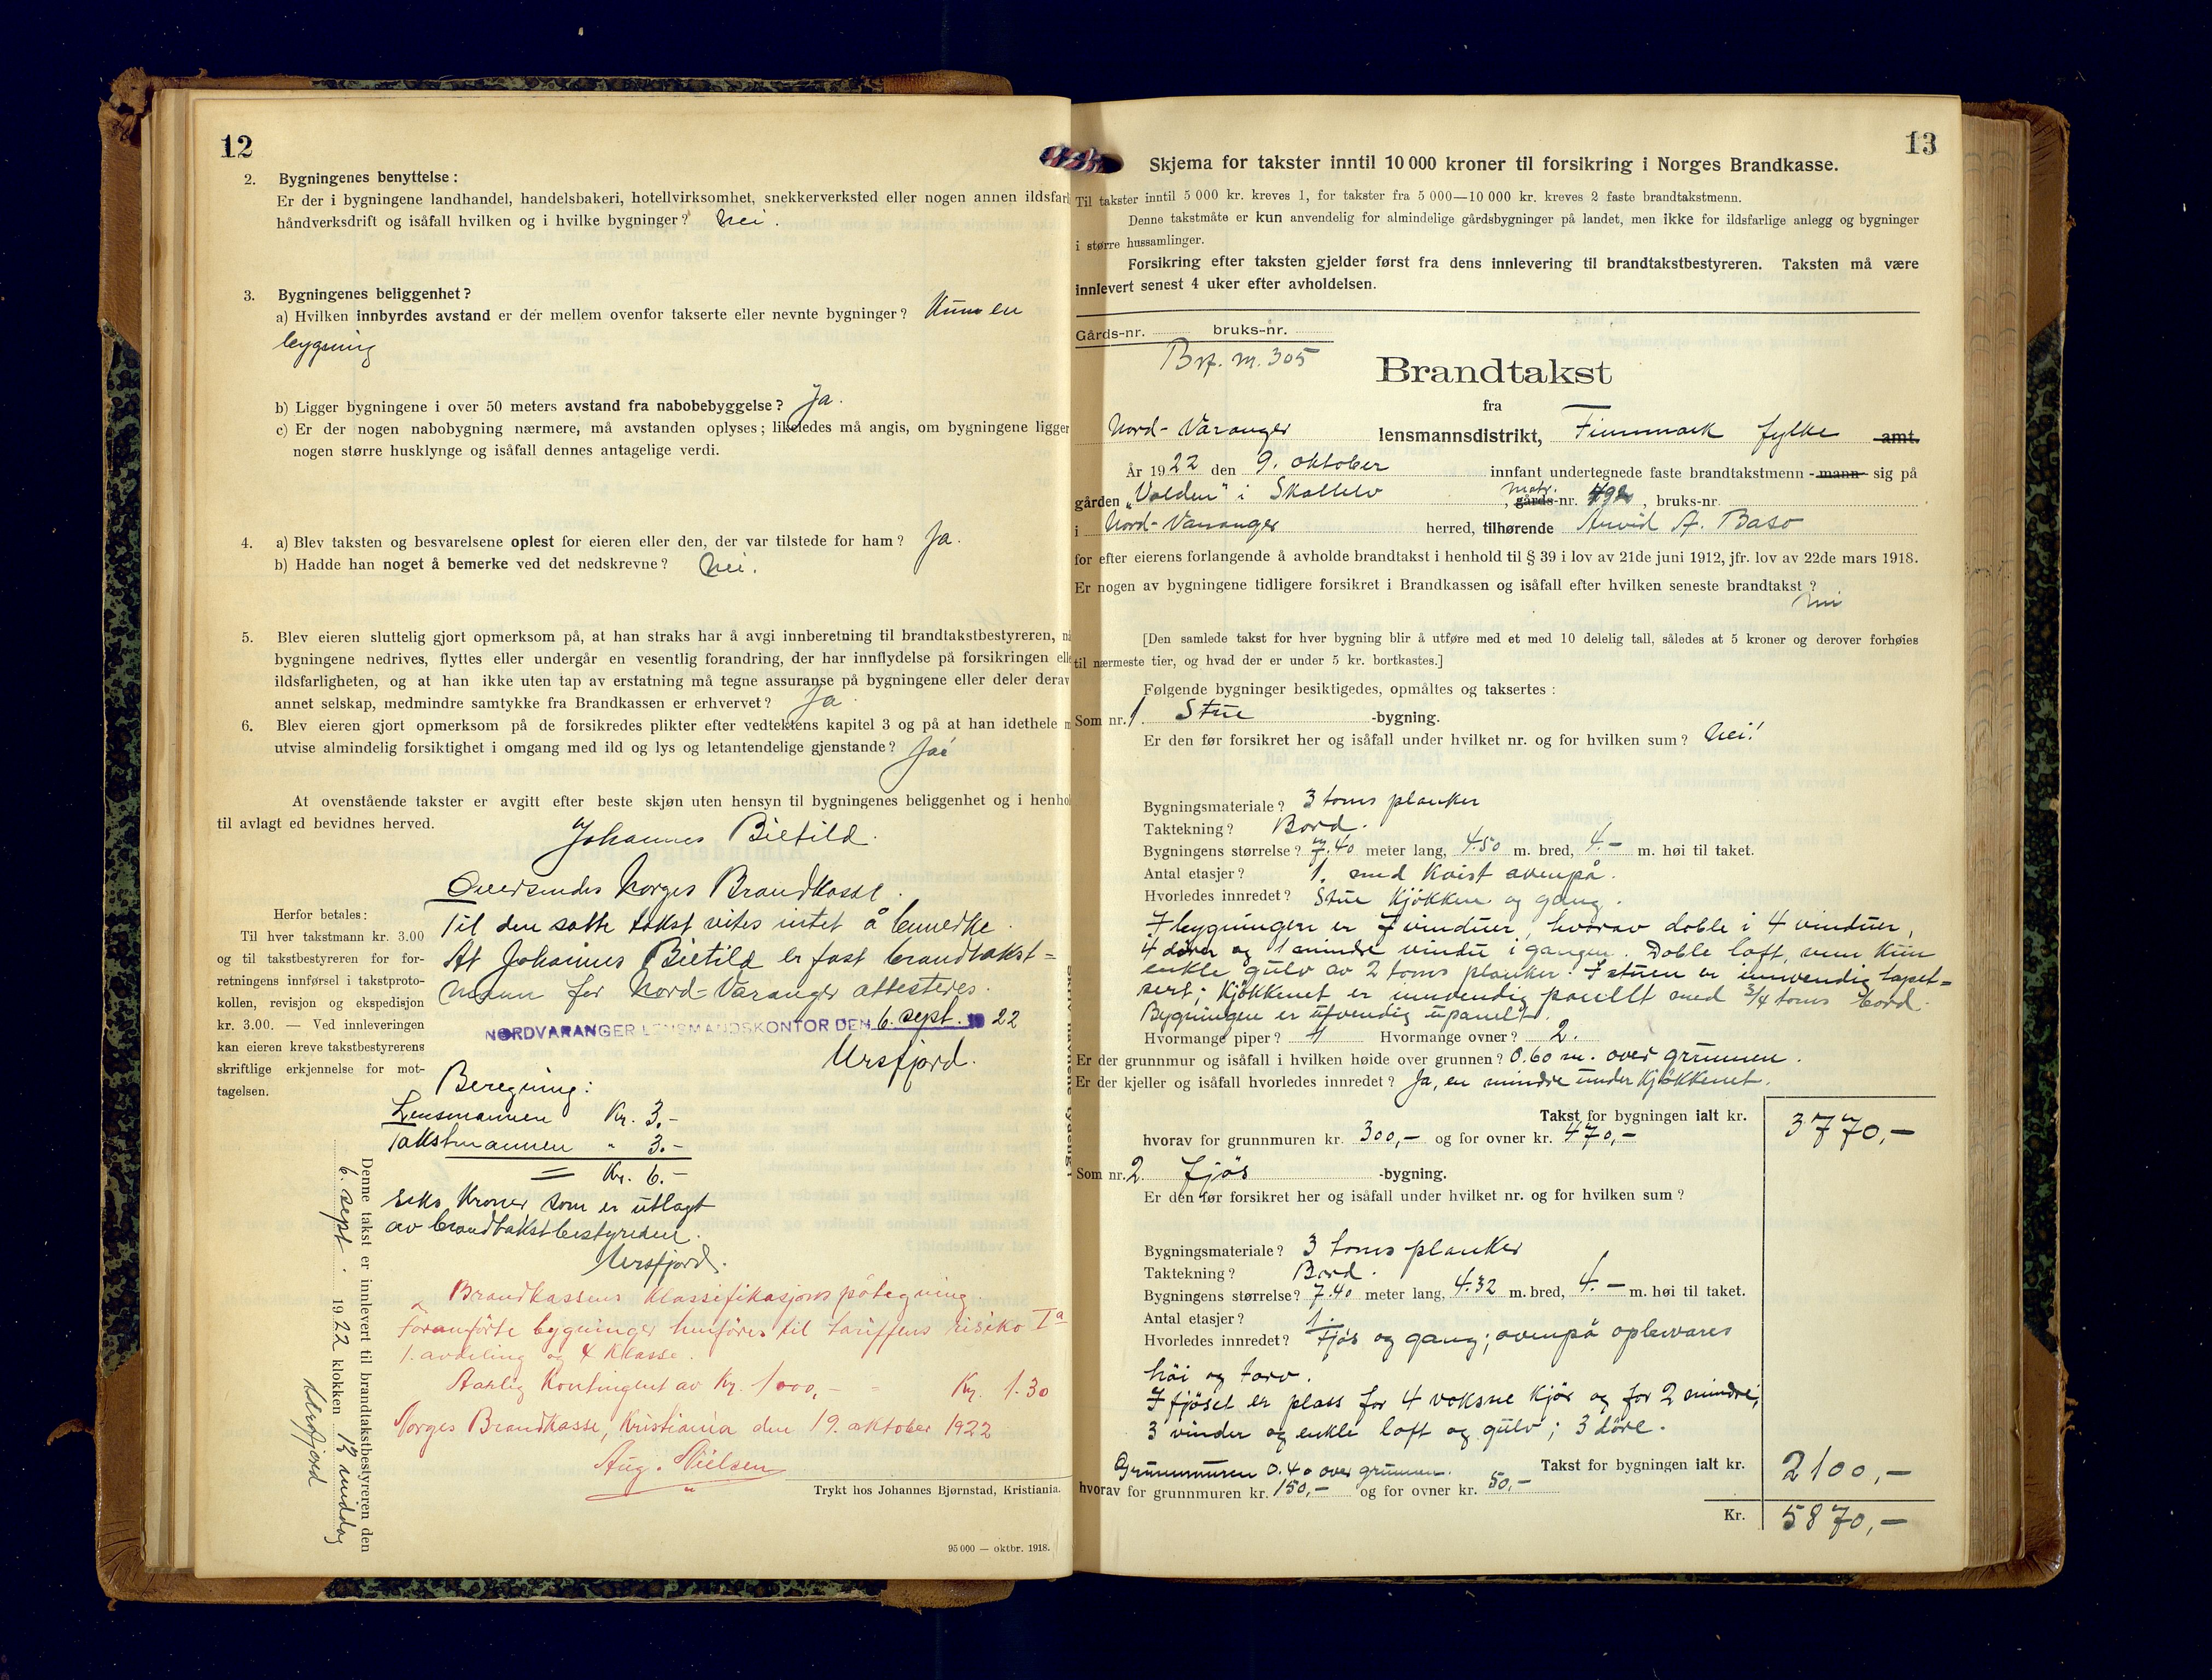 12
2. Bygningenes benyttelse:
Er der i bygningene landhandel, handelsbakeri, hotellvirksomhet, snekkerverksted eller nogen annen ildsfarl
håndverksdrift og isåfall hvilken og i hvilke bygninger? Nei.
3. Bygningenes beliggenhet?
a) Hvilken innbyrdes avstand er der mellem ovenfor takserte eller nevnte bygninger? Kun en
bygning
b) Ligger bygningene i over 50 meters avstand fra nabobebyggelse? Ja.
c) Er der nogen nabobygning nærmere, må avstanden oplyses; likeledes må angis, om bygningene ligger
nogen større husklynge og isåfall dennes antagelige verdi.
4. a) Blev taksten og besvarelsene oplest for eieren eller den, der var tilstede for ham? Ja.
b) Hadde han noget å bemerke ved det nedskrevne? Nei.
5. Blev eieren sluttelig gjort opmerksom på, at han straks har å avgi innberetning til brandtakstbestyreren, nå
bygningene nedrives, flyttes eller undergår en vesentlig forandring, der har innflydelse på forsikringen elle
ildsfarligheten, og at han ikke uten tap av erstatning må tegne assuranse på bygningene eller deler derav
annet selskap, medmindre samtykke fra Brandkassen er erhvervet? Ja
6. Blev eieren gjort opmerksom på de forsikredes plikter efter vedtektens kapitel 3 og på at han idethele m
utvise almindelig forsiktighet i omgang med ild og lys og letantendelige gjenstande? Ja
At ovenstående takster er avgitt efter beste skjøn uten hensyn til bygningenes beliggenhet og i henhol
til avlagt ed bevidnes herved.
Johannes Bietild.
Oversendes Norges Brandkasse.
Til den satte takst vites intet å bemerke.
At Johannes Bietild er fast brandtakst=
mann for Nord-Varanger attesteres.
NORDVARANGER LENSMANDSKONTOR DEN 6. sept. 19 22
Ursfjord.
Herfor betales:
Til hver takstmann kr. 3.00
og til takstbestyreren for for-
retningens innførsel i takstproto-
kollen, revisjon og ekspedisjon
kr. 3.00. — Ved innleveringen
kan eieren kreve takstbestyrerens
skriftlige erkjennelse for mot-
tagelsen.
Beregning:
Lensmannen Kr. 3.-
Takstmannen " 3.-
= Kr. 6.-
seks Kroner som er utlagt
av brandtakstbestyreren.
Ursfjord.
Denne takst er innlevert til brandtakstbestyreren den
6. sept. 1922 klokken 12 middag
Ursfjord
Brandkassens klassifikasjonspåtegning
Foranførte bygninger henføres til tariffens risiko I a
1. avdeling og 4 Klasse.
Aarlig Kontingent av Kr. 1000,- = Kr. 1.30
Norges Brandkasse, Kristiania den 19. oktober 1922
Aug. Nielsen
Trykt hos Johannes Bjørnstad, Kristiania.
95 000 — oktbr. 1918.
13
Skjema for takster inntil 10 000 kroner til forsikring i Norges Brandkasse.
Til takster inntil 5 000 kr. kreves 1, for takster fra 5 000—10 000 kr. kreves 2 faste brandtakstmenn.
Denne takstmåte er kun anvendelig for almindelige gårdsbygninger på landet, men ikke for ildsfarlige anlegg og bygninger
i større hussamlinger.
Forsikring efter taksten gjelder først fra dens innlevering til brandtakstbestyreren. Taksten må være
innlevert senest 4 uker efter avholdelsen.
Gårds-nr. bruks-nr.
305
Brandtakst
fra
Nord-Varanger lensmannsdistrikt, Finnmark fylke amt.
År 1922 den 9. oktober innfant undertegnede faste brandtakstmenn - mann - sig på
gården „Volden" i Skallelv , matr. gårds-nr. , bruks-nr.
i Nord-Varanger herred, tilhørende Arvid A. Baso
for efter eierens forlangende å avholde brandtakst i henhold til § 39 i lov av 21de juni 1912, jfr. lov av 22de mars 1918.
Er nogen av bygningene tidligere forsikret i Brandkassen og isåfall efter hvilken seneste brandtakst?
Nei
[Den samlede takst for hver bygning blir å utføre med et med 10 delelig tall, således at 5 kroner og derover forhøies
til nærmeste tier, og hvad der er under 5 kr. bortkastes.]
Følgende bygninger besiktigedes, opmåltes og taksertes:
Som nr. 1. Stue -bygning.
Er den før forsikret her og isåfall under hvilket nr. og for hvilken sum? Nei!
Bygningsmateriale? 3 toms planker
Taktekning? Bord.
Bygningens størrelse? 7.40 meter lang, 4.50 m. bred, 4.— m. høi til taket.
Antal etasjer? 1. med Kvist ovenpå.
Hvorledes innredet? Stue Kjøkken og gang.
I bygningen er 7 vinduer, hvorav doble i 4 vinduer,
4 dører og 1 mindre vindu i gangen. Doble loft, men kun
enkle gulv av 2 toms planker. I stuen er innvendig tapet=
sert; Kjøkkenet er innvendig panelt med 3/4 toms bord.
Bygningen er utvendig upanelt.
Hvormange piper? 1 Hvormange ovner? 2.
Er der grunnmur og isåfall i hvilken høide over grunnen? 0.60 m. over grunnen.
Er der kjeller og isåfall hvorledes innredet? Ja, en mindre under Kjøkkenet.
Takst for bygningen ialt kr. 3770,—
hvorav for grunnmuren kr. 300,— og for ovner kr. 470,—
Som nr. 2. Fjøs -bygning.
Er den før forsikret her og isåfall under hvilket nr. og for hvilken sum?
Bygningsmateriale? 3 toms planker
Taktekning? Bord.
Bygningens størrelse? 7.40 meter lang, 4.32 m. bred, 4.— m. høi til taket.
Antal etasjer? 1.
Hvorledes innredet? Fjøs og gang; ovenpå opbevares
høi og torv.
I fjøset er plass for 4 voksne Kjør og for 2 mindre;
3 vinder og enkle loft og gulv; 3 døre.
Grunnmuren 0.40 over grunnen. Takst for bygningen ialt kr. 2100,—
hvorav for grunnmuren kr. 150,— og for ovner kr. 50,—
Kr. 5870,—